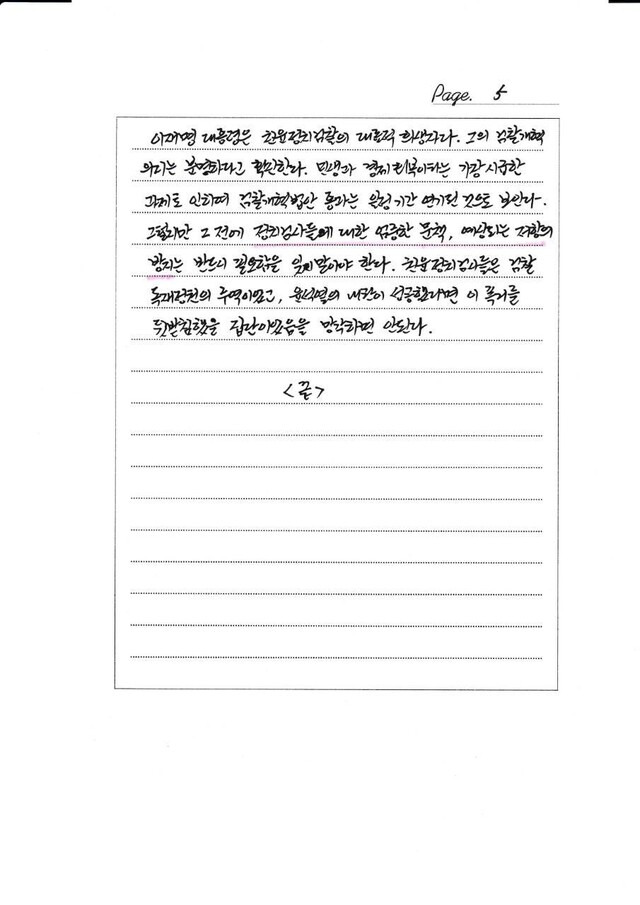 Page. 5
이재명 대통령은 친윤정치검찰의 대표적 희생자다. 그의 검찰개혁
의지는 분명하다고 확신한다. 민생과 경제회복이라는 가장 시급한
과제로 인하여 검찰개혁법안 통과는 일정기간 연기될 것으로 보인다.
그렇지만 그 전에 정치검사들에 대한 엄중한 문책, 예상되는 저항의
방지는 반드시 필요함을 잊지말아야 한다. 친윤정치검사들은 검찰
독재정권의 주역이었고, 윤석열의 내란이 성공했다면 이 폭거를
뒷받침했을 집단이었음을 망각하면 안된다.
<끝>